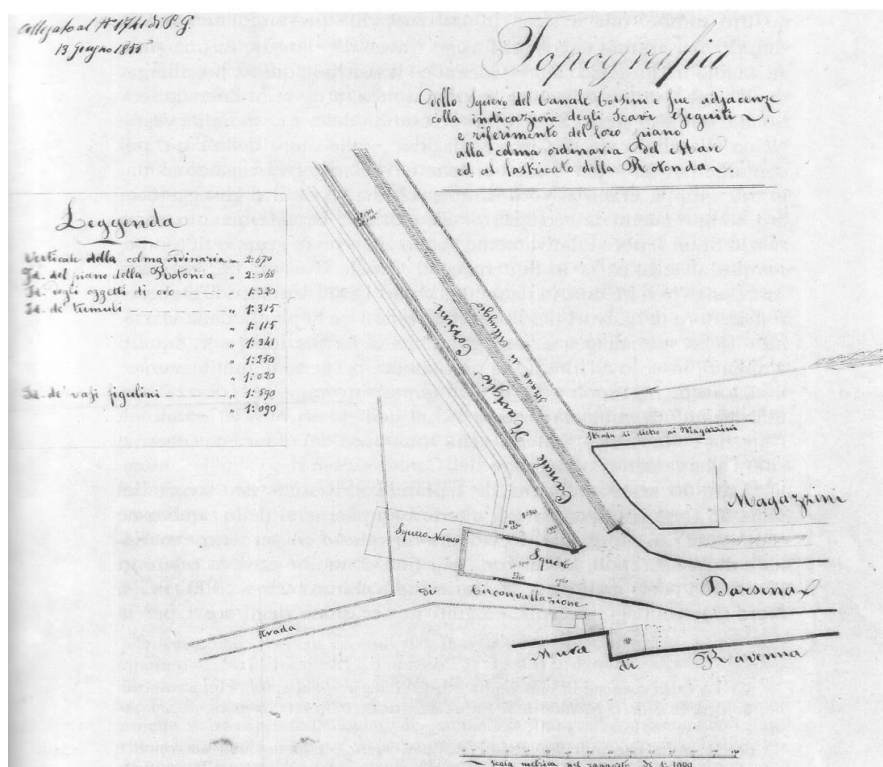 Allegato al N° 1741 di P. G.
13 Giugno 1855
Topografia
Dello Squero del Canale Corsini e sue adjacenze
colla indicazione degli scavi eseguiti
e riferimento del loro piano
alla colma ordinaria del Mare
ed al lastricato della Rotonda
Leggenda
Verticale della colma ordinaria = 2:670
Id. del piano della Rotonda
Id. agli oggetti di oro
Id. de' tumuli " 1:315
" 1:115
" 1:341
" 1:250
" 1:020
Id. de' vasi figulini " 1:590
" 1:090
Canale Naviglio Corsini
Strada di Allaggio
Strada di dietro ai Magazzini
Magazzini
Squero Nuovo
Squero
Darsena
Strada di Circonvallazione
Mura di Ravenna
Scala metrica nel rapporto di 1:1000